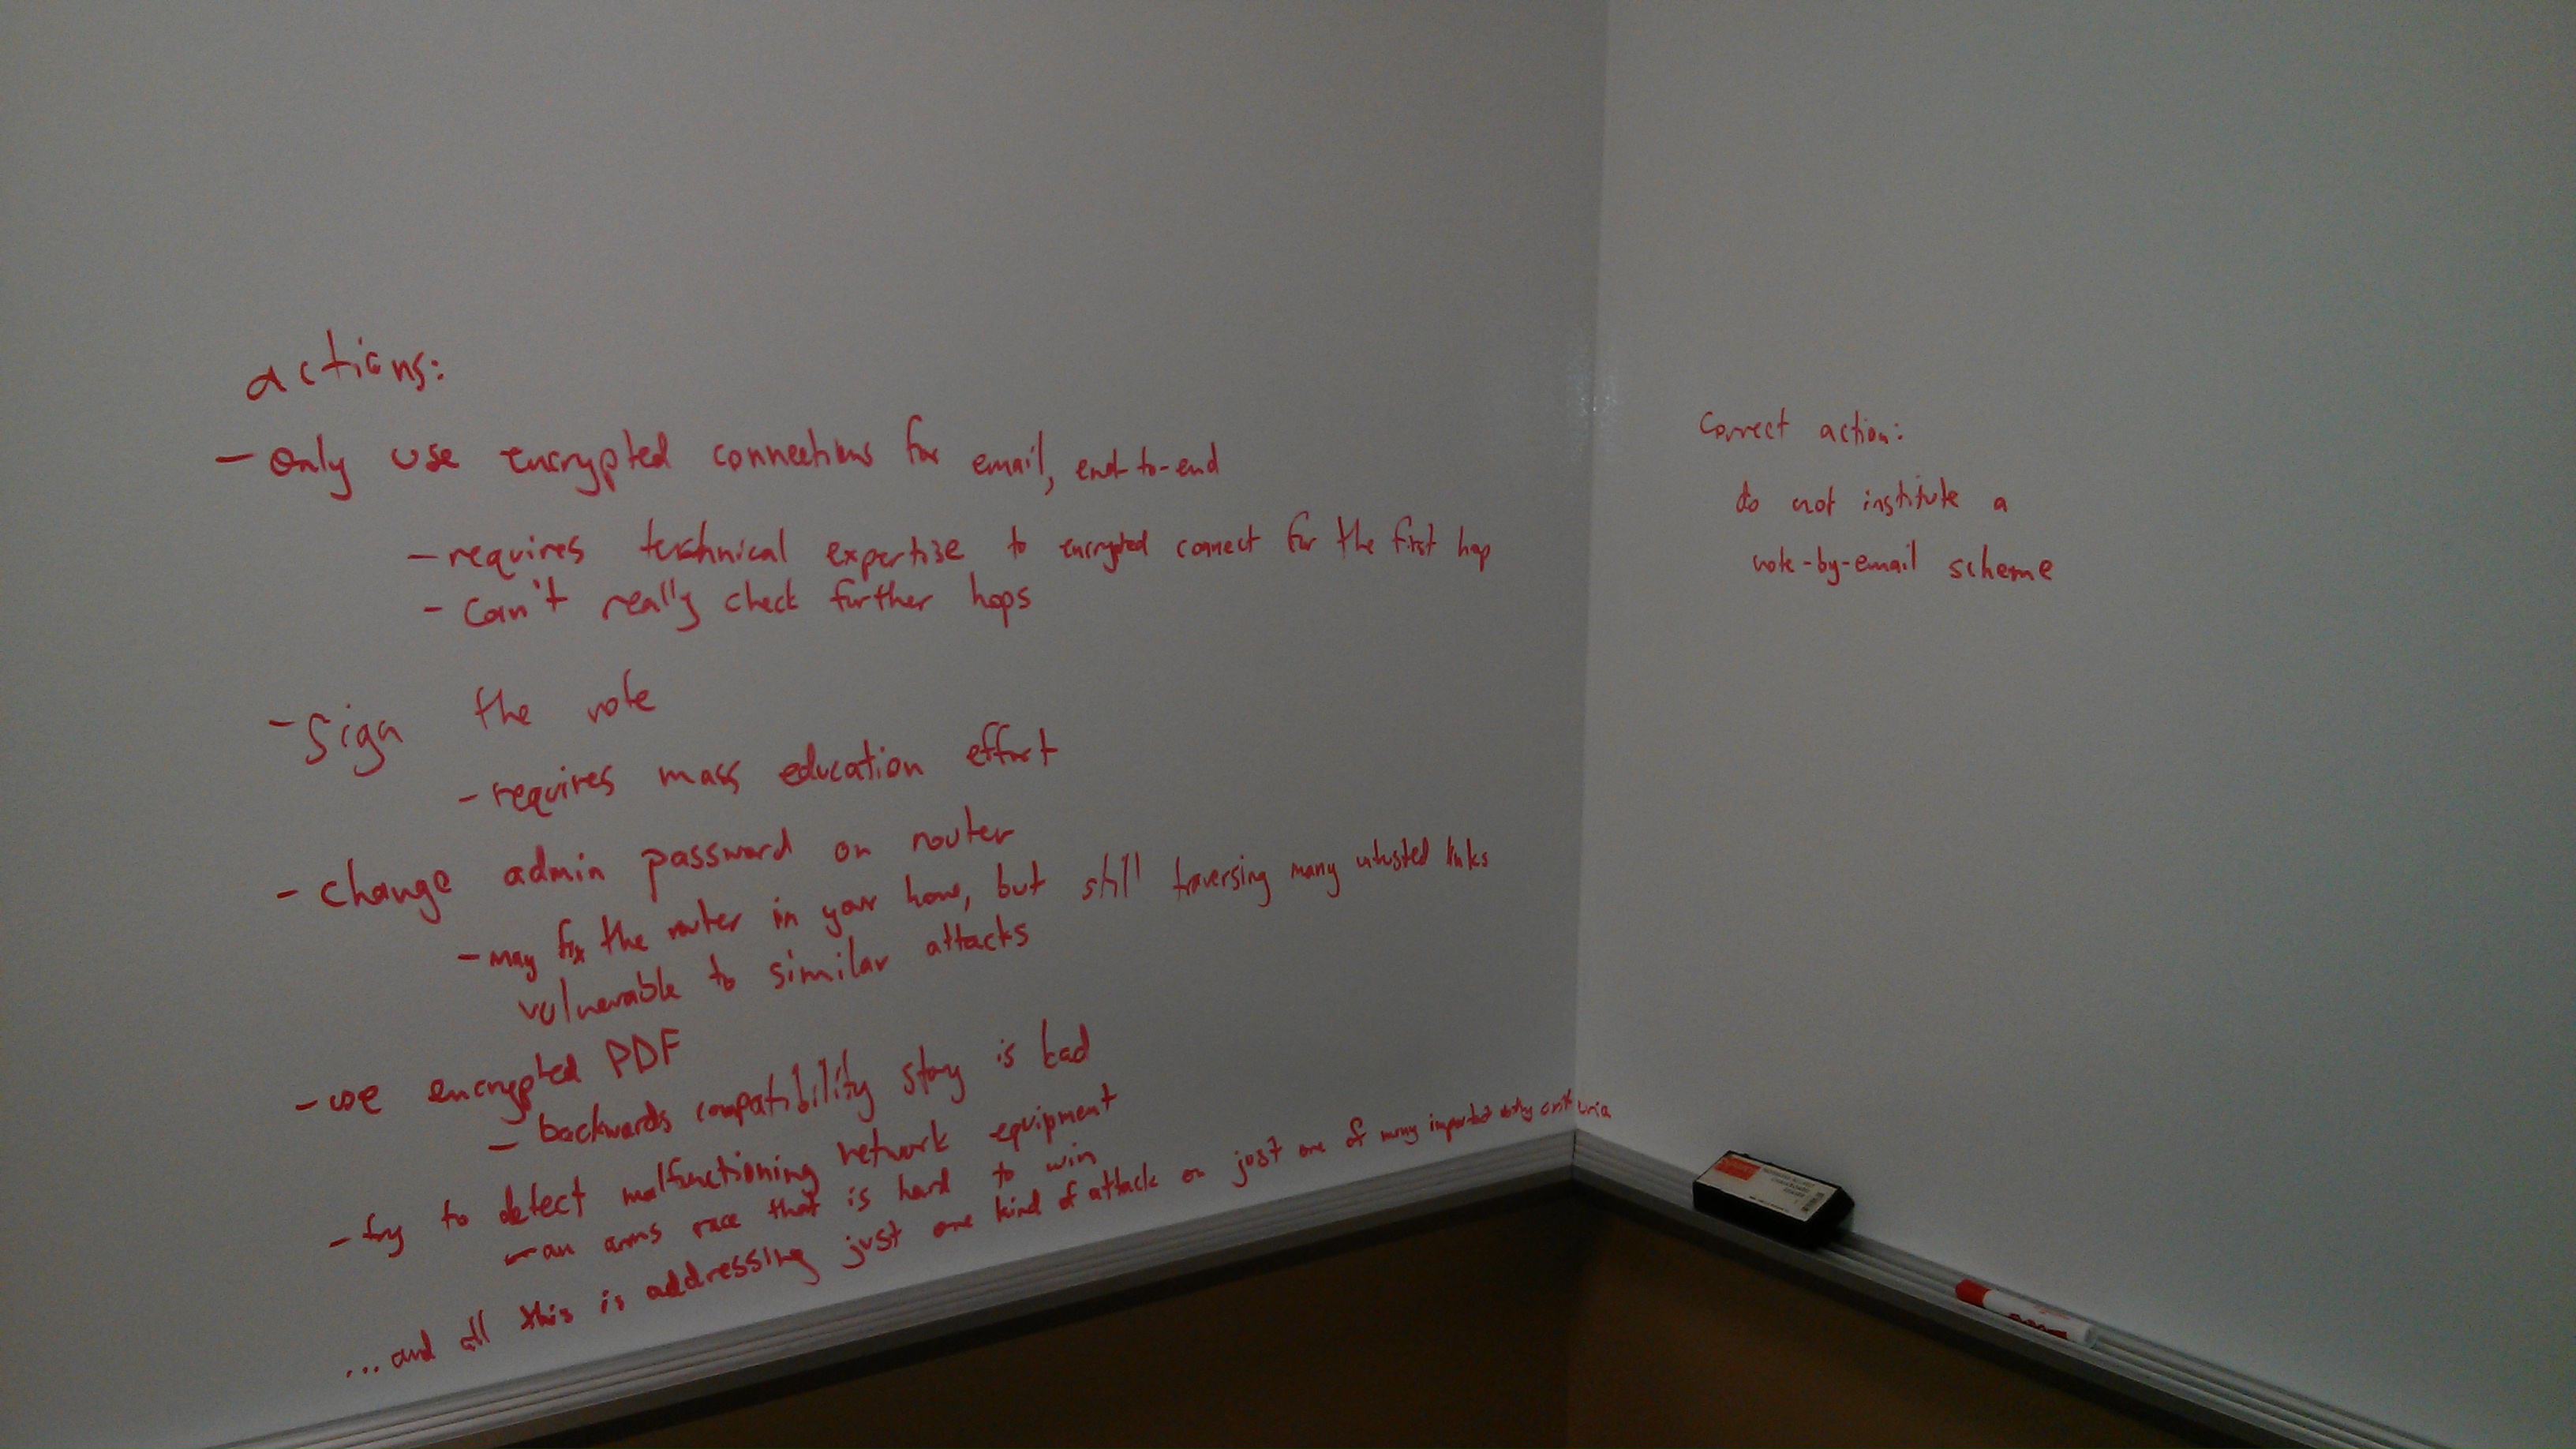 actions:
- Only use encrypted connections for email, end-to-end
- requires technical expertise to encrypted connect for the first hop
- Can't really check further hops
- Sign the vote
- requires mass education effort
- change admin password on router
- may fix the router in your home, but still traversing many untrusted links
vulnerable to similar attacks
- use encrypted PDF
- backwards compatibility story is bad
- try to detect malfunctioning network equipment
- an arms race that is hard to win
...and all this is addressing just one kind of attack on just one of many important criteria
Correct action:
do not institute a
vote-by-email scheme